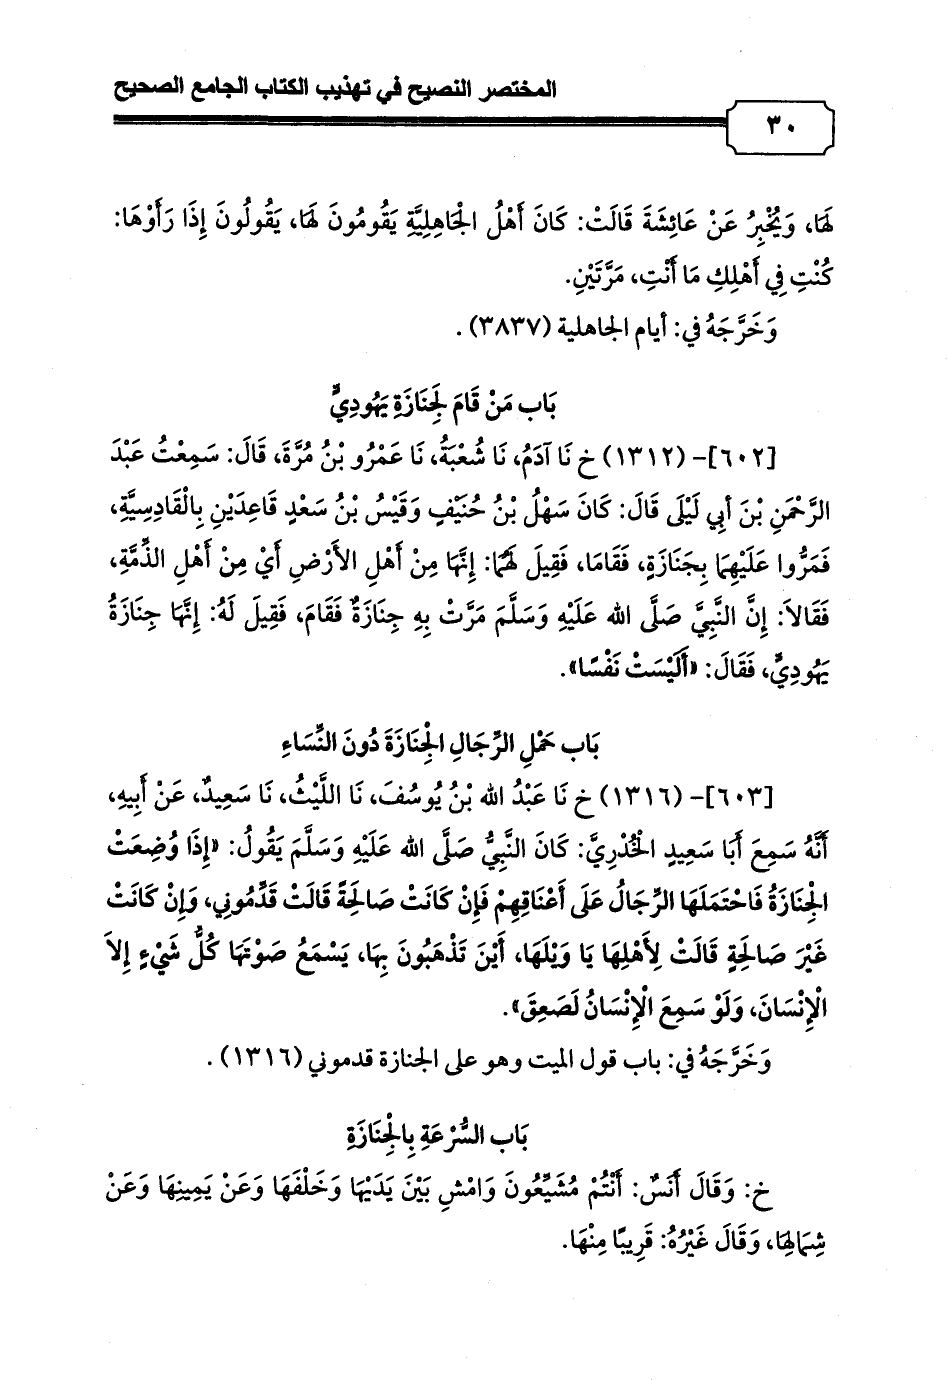 المختصر النصيح في تهذيب الكتاب الجامع الصحيح
٣٠
لَهَا، وَيُخْبِرُ عَنْ عَائِشَةَ قَالَتْ: كَانَ أَهْلُ الْجَاهِلِيَّةِ يَقُومُونَ لَهَا، يَقُولُونَ إِذَا رَأَوْهَا:
كُنْتِ فِي أَهْلِكِ مَا أَنْتِ، مَرَّتَيْنِ.
وَخَرَّجَهُ في: أيام الجاهلية (٣٨٣٧).
بَاب مَنْ قَامَ لِجَنَازَةِ يَهُودِيٍّ
[٦٠٢]- (١٣١٢) خ نَا آدَمُ، نَا شُعْبَةُ، نَا عَمْرُو بْنُ مُرَّةَ، قَالَ: سَمِعْتُ عَبْدَ
الرَّحْمَنِ بْنَ أَبِي لَيْلَى قَالَ: كَانَ سَهْلُ بْنُ حُنَيْفٍ وَقَيْسُ بْنُ سَعْدٍ قَاعِدَيْنِ بِالْقَادِسِيَّةِ،
فَمَرُّوا عَلَيْهِمَا بِجَنَازَةٍ، فَقَامَا، فَقِيلَ لَهُمَا: إِنَّهَا مِنْ أَهْلِ الأَرْضِ أَيْ مِنْ أَهْلِ الذِّمَّةِ،
فَقَالاَ: إِنَّ النَّبِيَّ صَلَّى الله عَلَيْهِ وَسَلَّمَ مَرَّتْ بِهِ جِنَازَةٌ فَقَامَ، فَقِيلَ لَهُ: إِنَّهَا جِنَازَةُ
يَهُودِيٍّ، فَقَالَ: «أَلَيْسَتْ نَفْسًا».
بَاب حَمْلِ الرِّجَالِ الْجِنَازَةَ دُونَ النِّسَاءِ
[٦٠٣]- (١٣١٦) خ نَا عَبْدُ الله بْنُ يُوسُفَ، نَا اللَّيْثُ، نَا سَعِيدٌ، عَنْ أَبِيهِ،
أَنَّهُ سَمِعَ أَبَا سَعِيدٍ الْخُدْرِيَّ: كَانَ النَّبِيُّ صَلَّى الله عَلَيْهِ وَسَلَّمَ يَقُولُ: «إِذَا وُضِعَتْ
الْجِنَازَةُ فَاحْتَمَلَهَا الرِّجَالُ عَلَى أَعْنَاقِهِمْ فَإِنْ كَانَتْ صَالِحَةً قَالَتْ قَدِّمُونِي، وَإِنْ كَانَتْ
غَيْرَ صَالِحَةٍ قَالَتْ لِأَهْلِهَا يَا وَيْلَهَا، أَيْنَ تَذْهَبُونَ بِهَا، يَسْمَعُ صَوْتَهَا كُلُّ شَيْءٍ إِلاَ
الْإِنْسَانَ، وَلَوْ سَمِعَ الْإِنْسَانُ لَصَعِقَ».
وَخَرَّجَهُ في: باب قول الميت وهو على الجنازة قدموني (١٣١٦).
بَاب السُّرْعَةِ بِالْجِنَازَةِ
خ: وَقَالَ أَنَسٌ: أَنْتُمْ مُشَيِّعُونَ وَامْشِ بَيْنَ يَدَيْهَا وَخَلْفَهَا وَعَنْ يَمِينِهَا وَعَنْ
شِمَالِهَا، وَقَالَ غَيْرُهُ: قَرِيبًا مِنْهَا.